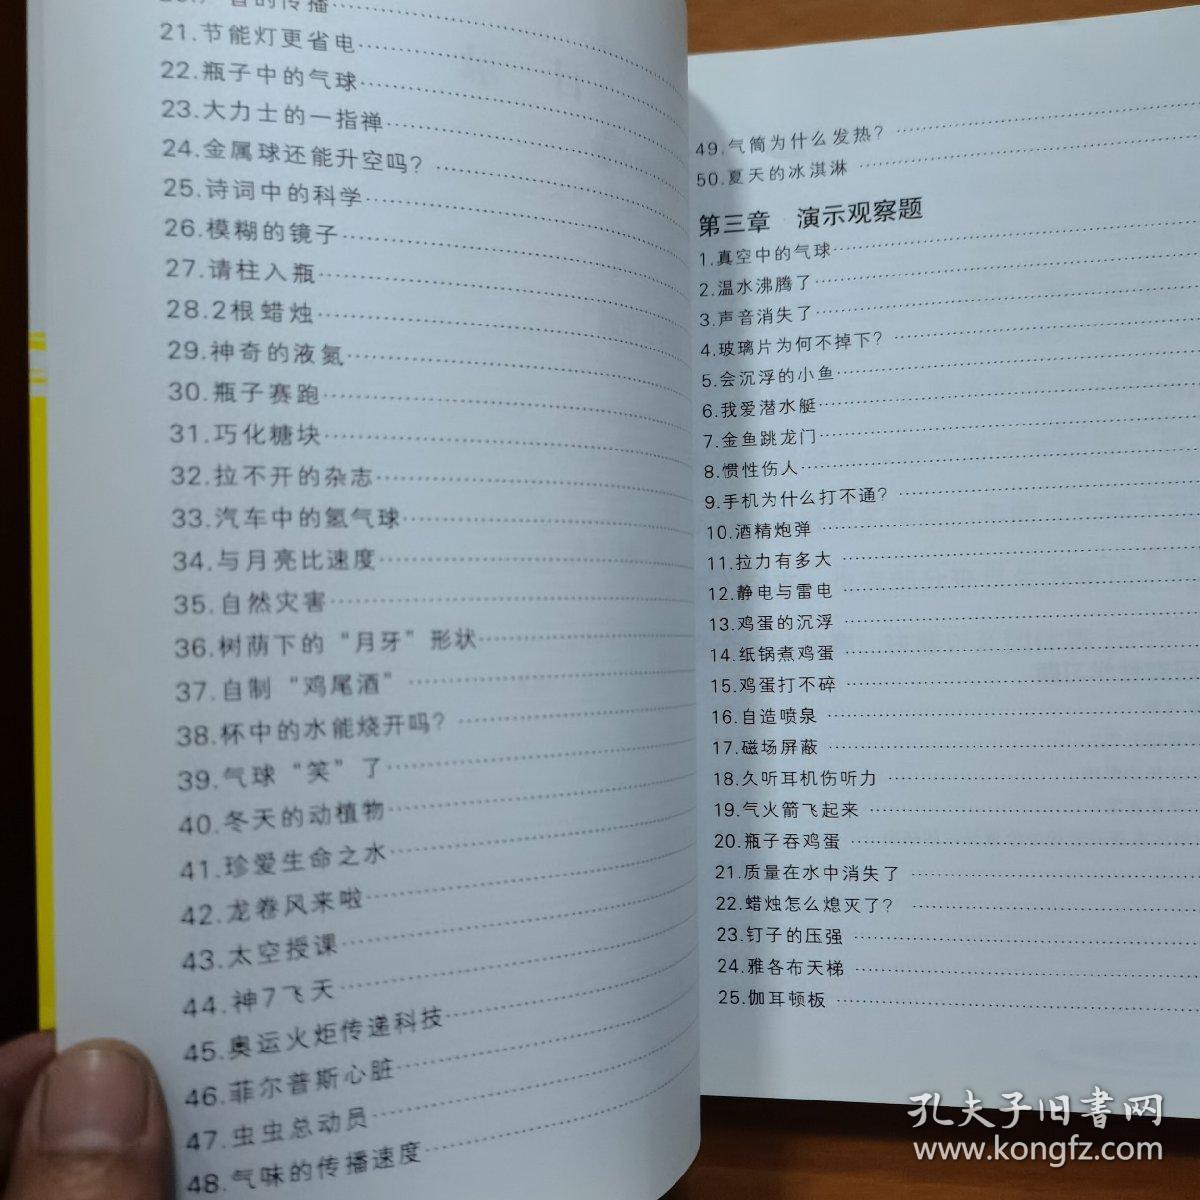 21.节能灯更省电
22.瓶子中的气球
23.大力士的一指禅
24.金属球还能升空吗？
25.诗词中的科学
26.模糊的镜子
27.请柱入瓶
28.2根蜡烛
29.神奇的液氮
30.瓶子赛跑
31.巧化糖块
32.拉不开的杂志
33.汽车中的氢气球
34.与月亮比速度
35.自然灾害
36.树荫下的“月牙”形状
37.自制“鸡尾酒”
38.杯中的水能烧开吗？
39.气球“笑”了
40.冬天的动植物
41.珍爱生命之水
42.龙卷风来啦
43.太空授课
44.神7飞天
45.奥运火炬传递科技
46.菲尔普斯心脏
47.虫虫总动员
48.气味的传播速度
49.气筒为什么发热？
50.夏天的冰淇淋
第三章 演示观察题
1.真空中的气球
2.温水沸腾了
3.声音消失了
4.玻璃片为何不掉下？
5.会沉浮的小鱼
6.我爱潜水艇
7.金鱼跳龙门
8.惯性伤人
9.手机为什么打不通？
10.酒精炮弹
11.拉力有多大
12.静电与雷电
13.鸡蛋的沉浮
14.纸锅煮鸡蛋
15.鸡蛋打不碎
16.自造喷泉
17.磁场屏蔽
18.久听耳机伤听力
19.气火箭飞起来
20.瓶子吞鸡蛋
21.质量在水中消失了
22.蜡烛怎么熄灭了？
23.钉子的压强
24.雅各布天梯
25.伽耳顿板
孔夫子旧書网
www.kongfz.com